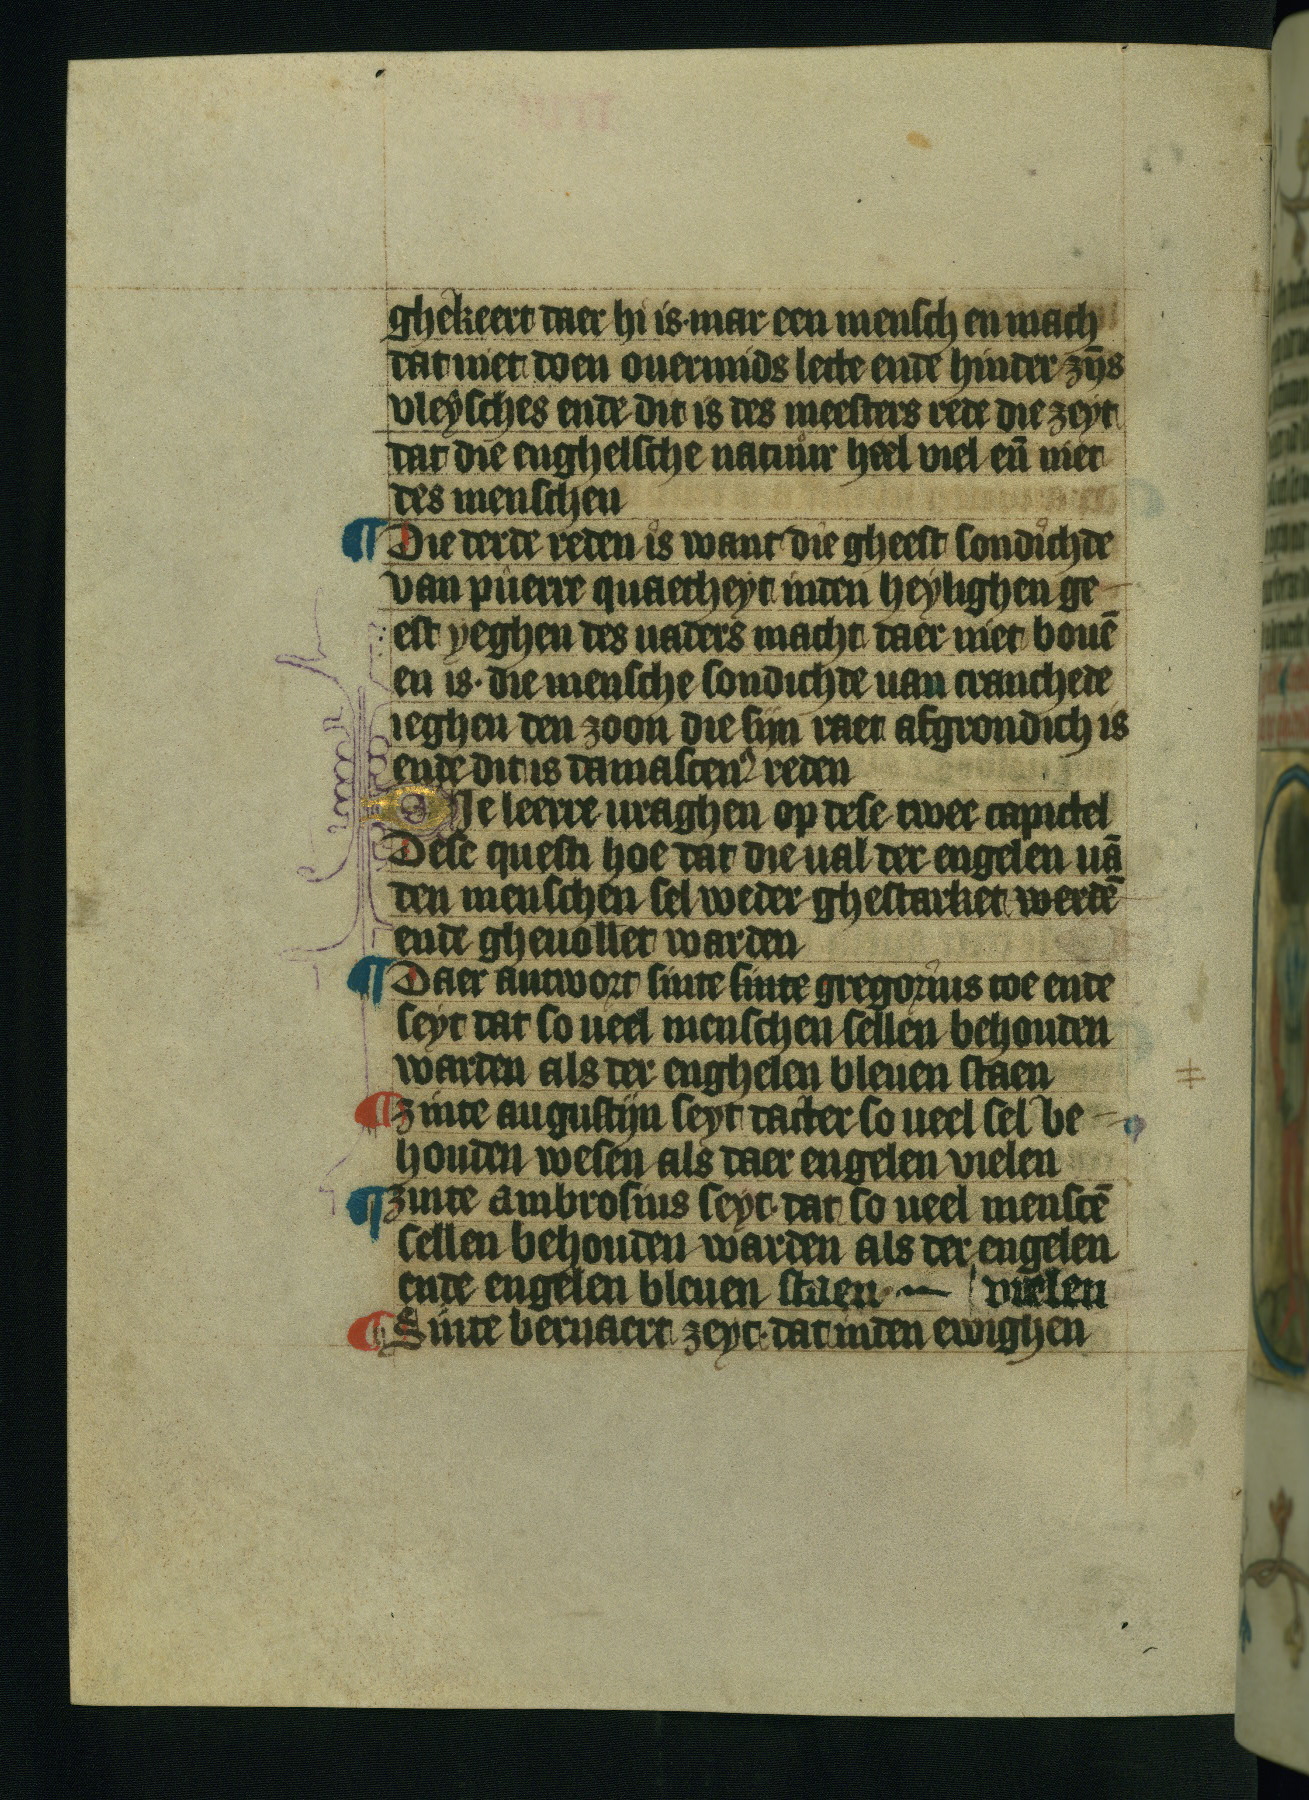 ghekeert daer hi is·mar een mensch en mach
dat niet doen ouermids lede ende hinder zijns
vleysches ende dit is des meesters rede die zeyt
dat die enghelsche natuur heel viel eñ niet
des menschen
¶ Die derde reden is want die gheest sondichde
van puerre quaetheyt inden heylighen ge
est yeghen des uaders macht daer niet bouē
en is· die mensche sondichde uan cranchede
ieghen den zoon die sijn raet afgrondich is
ende dit is damascenꝰ reden
Die leerre uraghen op dese twee capittel
Dese questi hoe dat die ual der engelen uā
den menschen sel weder ghestarket werdē
ende gheuollet warden
¶ Daer antwort sinte sinte gregorius toe ende
seyt dat so ueel menschen sellen behouden
warden als der enghelen bleuen staen
¶ zinte augustijn seyt datter so ueel sel be
houden wesen als daer engelen vielen
¶ zinte ambrosius seyt·dat so ueel menscē
sellen behouden warden als der engelen
ende engelen bleuen staen· vielen
¶ Sinte bernaert zeyt·dat inden ewighen